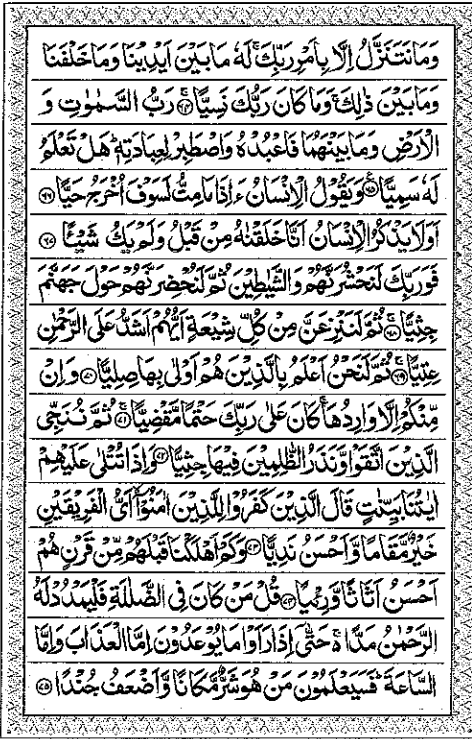 وَمَا نَتَنَزَّلُ اِلَّا بِاَمْرِ رَبِّكَ ۚ لَهٗ مَا بَيْنَ اَيْدِيْنَا وَمَا خَلْفَنَا
وَمَا بَيْنَ ذٰلِكَ ۚ وَمَا كَانَ رَبُّكَ نَسِيًّا ۚ‏﴿۶۴﴾ رَبُّ السَّمٰوٰتِ وَ
الْاَرْضِ وَمَا بَيْنَهُمَا فَاعْبُدْهُ وَاصْطَبِرْ لِعِبَادَتِهٖ ؕ هَلْ تَعْلَمُ
لَهٗ سَمِيًّا ﴿۶۵﴾ وَيَقُوْلُ الْاِنْسَانُ ءَاِذَا مَا مِتُّ لَسَوْفَ اُخْرَجُ حَيًّا ﴿۶۶﴾
اَوَلَا يَذْكُرُ الْاِنْسَانُ اَنَّا خَلَقْنٰهُ مِنْ قَبْلُ وَلَمْ يَكُ شَيْـًٔا ﴿۶۷﴾
فَوَرَبِّكَ لَنَحْشُرَنَّهُمْ وَالشَّيٰطِيْنَ ثُمَّ لَنُحْضِرَنَّهُمْ حَوْلَ جَهَنَّمَ
جِثِيًّا ۚ﴿۶۸﴾ ثُمَّ لَنَنْزِعَنَّ مِنْ كُلِّ شِيْعَةٍ اَيُّهُمْ اَشَدُّ عَلَى الرَّحْمٰنِ
عِتِيًّا ۚ﴿۶۹﴾ ثُمَّ لَنَحْنُ اَعْلَمُ بِالَّذِيْنَ هُمْ اَوْلٰى بِهَا صِلِيًّا ﴿۷۰﴾ وَاِنْ
مِّنْكُمْ اِلَّا وَارِدُهَا ۚ كَانَ عَلٰى رَبِّكَ حَتْمًا مَّقْضِيًّا ۚ﴿۷۱﴾ ثُمَّ نُنَجِّى
الَّذِيْنَ اتَّقَوْا وَّنَذَرُ الظّٰلِمِيْنَ فِيْهَا جِثِيًّا ﴿۷۲﴾ وَاِذَا تُتْلٰى عَلَيْهِمْ
اٰيٰتُنَا بَيِّنٰتٍ قَالَ الَّذِيْنَ كَفَرُوْا لِلَّذِيْنَ اٰمَنُوْٓا ۙ اَىُّ الْفَرِيْقَيْنِ
خَيْرٌ مَّقَامًا وَّاَحْسَنُ نَدِيًّا ﴿۷۳﴾ وَكَمْ اَهْلَكْنَا قَبْلَهُمْ مِّنْ قَرْنٍ هُمْ
اَحْسَنُ اَثَاثًا وَّرِءْيًا ﴿۷۴﴾ قُلْ مَنْ كَانَ فِى الضَّلٰلَةِ فَلْيَمْدُدْ لَهُ
الرَّحْمٰنُ مَدًّا ۚ حَتّٰٓى اِذَا رَاَوْا مَا يُوْعَدُوْنَ اِمَّا الْعَذَابَ وَاِمَّا
السَّاعَةَ ؕ فَسَيَعْلَمُوْنَ مَنْ هُوَ شَرٌّ مَّكَانًا وَّاَضْعَفُ جُنْدًا ﴿۷۵﴾